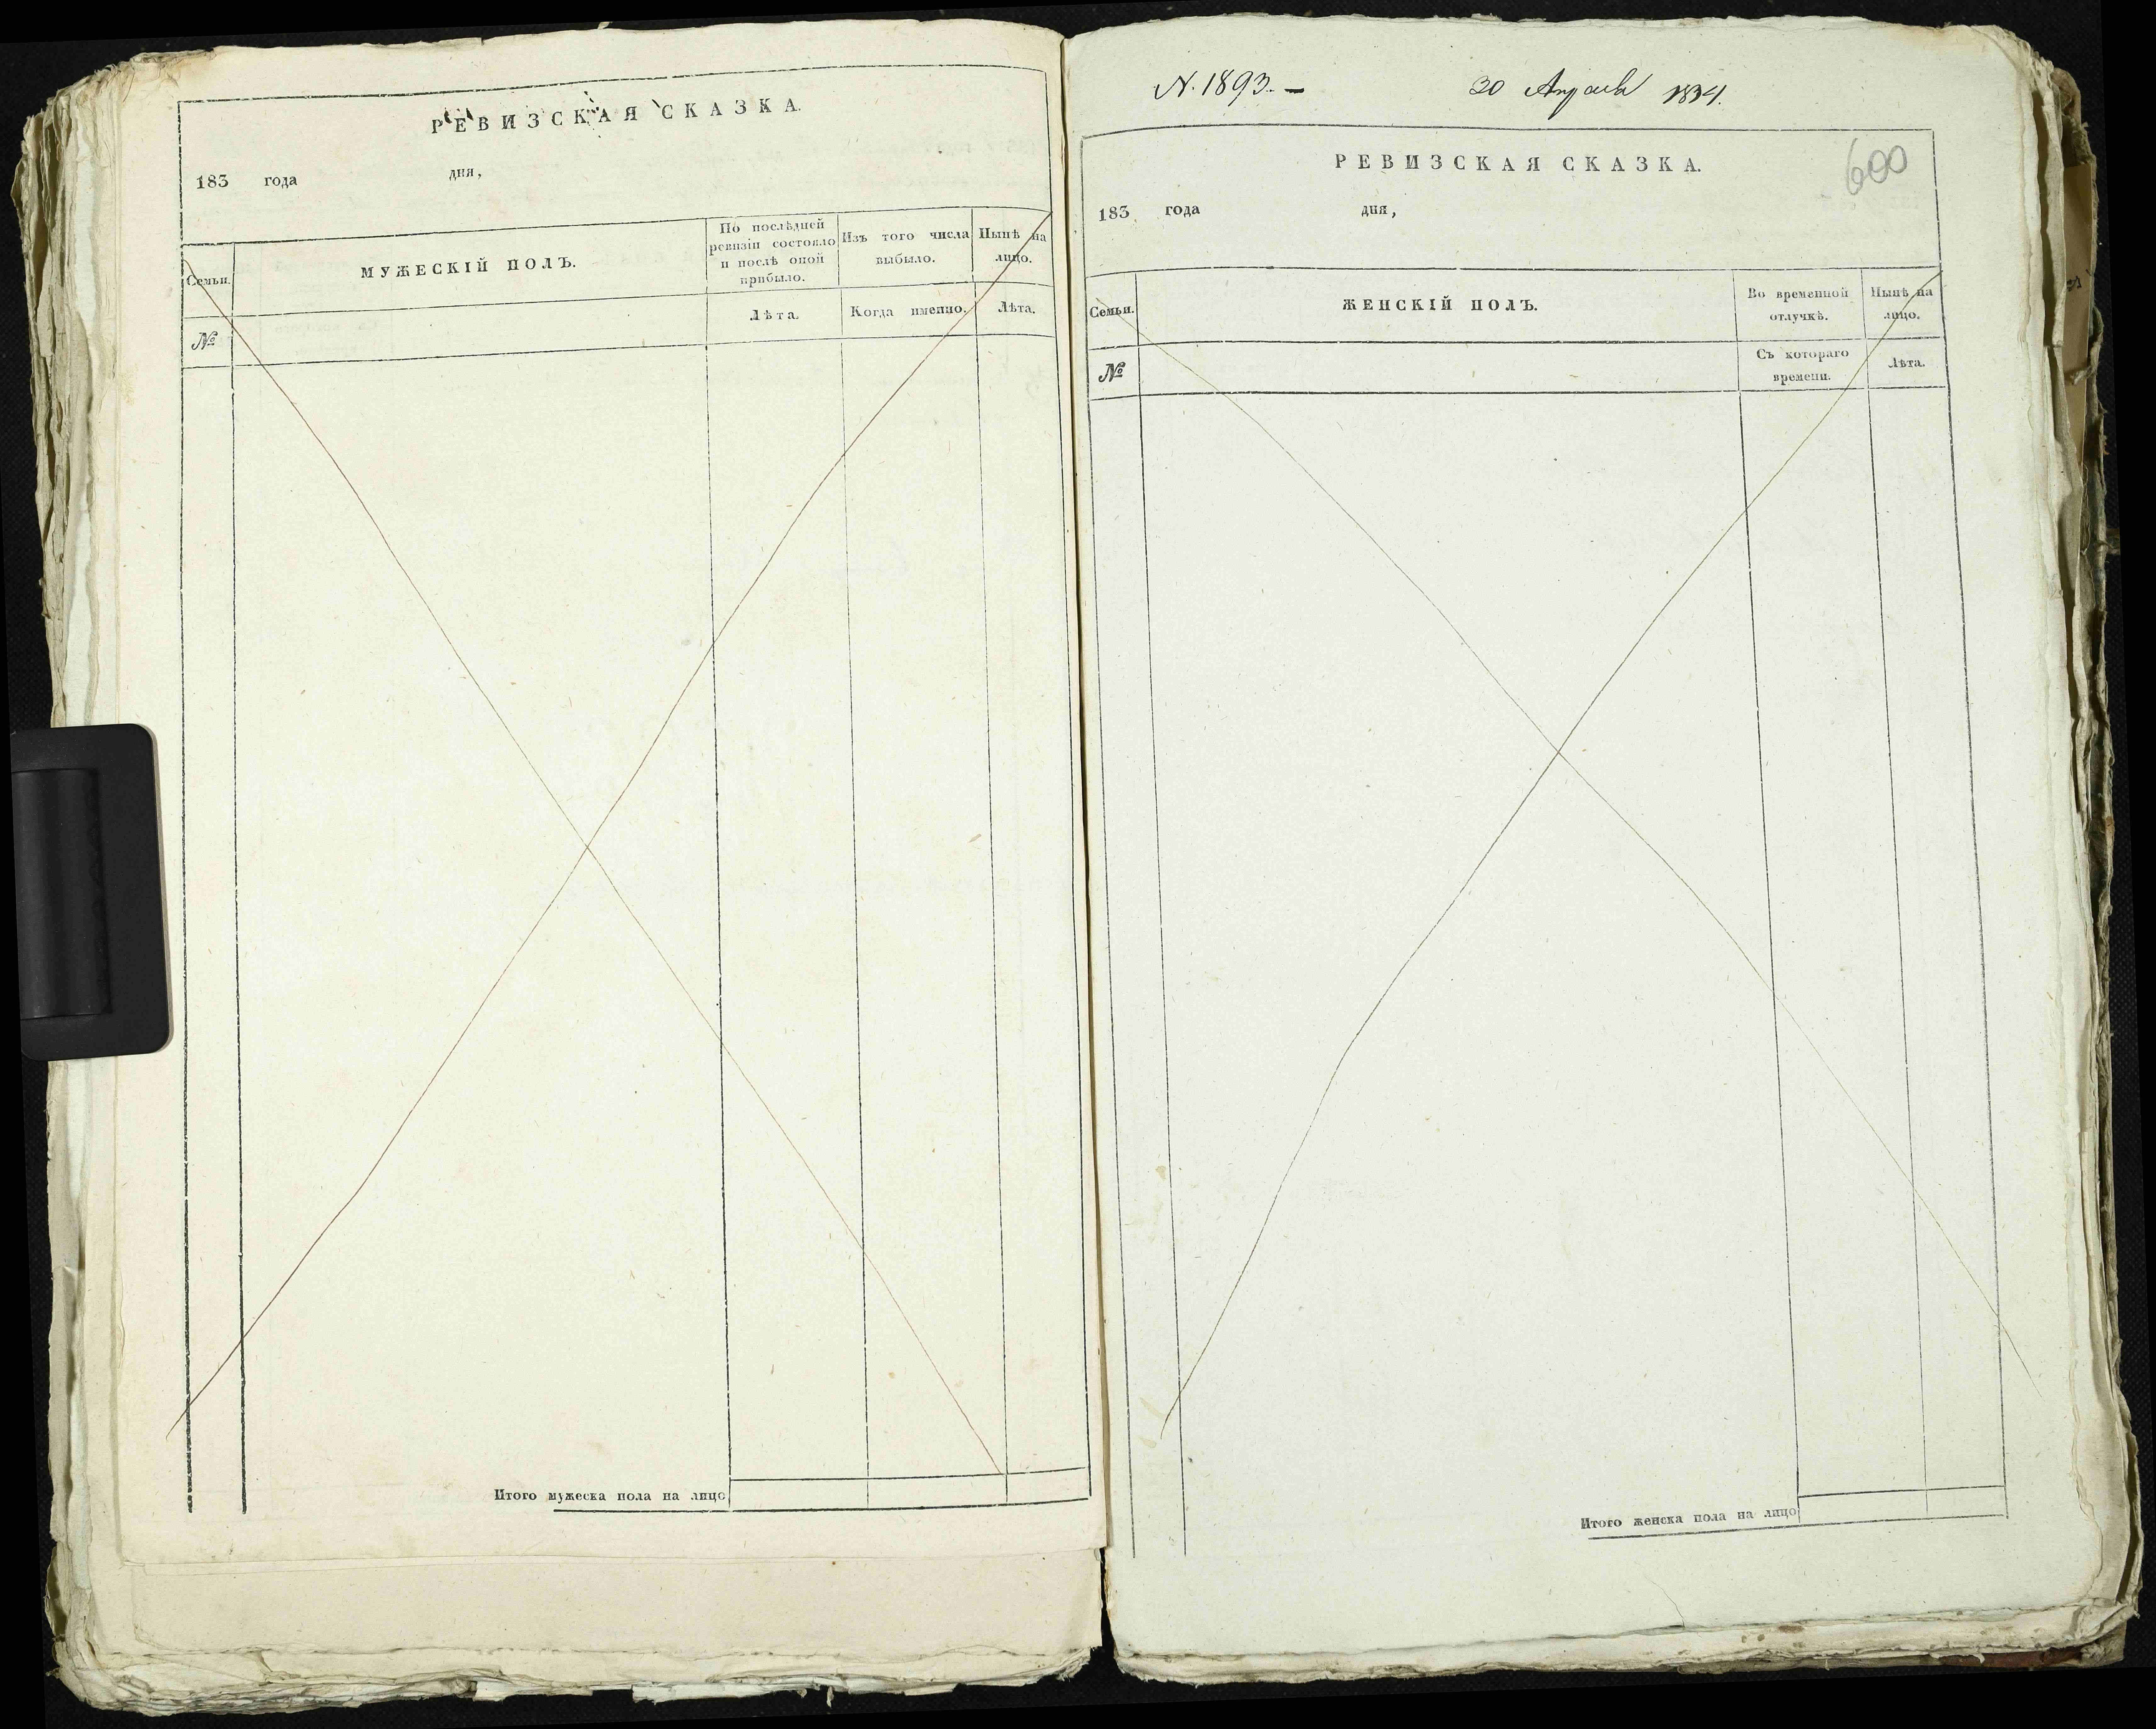 РЕВИЗСКАЯ СКАЗКА.
183 года дня,
Семьи.
МУЖЕСКІЙ ПОЛЪ.
По послѣдней
ревизіи состояло
и послѣ оной
прибыло.
Изъ того числа
выбыло.
Нынѣ на
лицо.
№
Лѣта.
Когда именно.
Лѣта.
Итого мужеска пола на лицо
N. 1893. — 30 Апрѣля 1834.
600
РЕВИЗСКАЯ СКАЗКА.
183 года дня,
Семьи.
ЖЕНСКІЙ ПОЛЪ.
Во временной
отлучкѣ.
Нынѣ на
лицо.
№
Съ котораго
времени.
Лѣта.
Итого женска пола на лицо